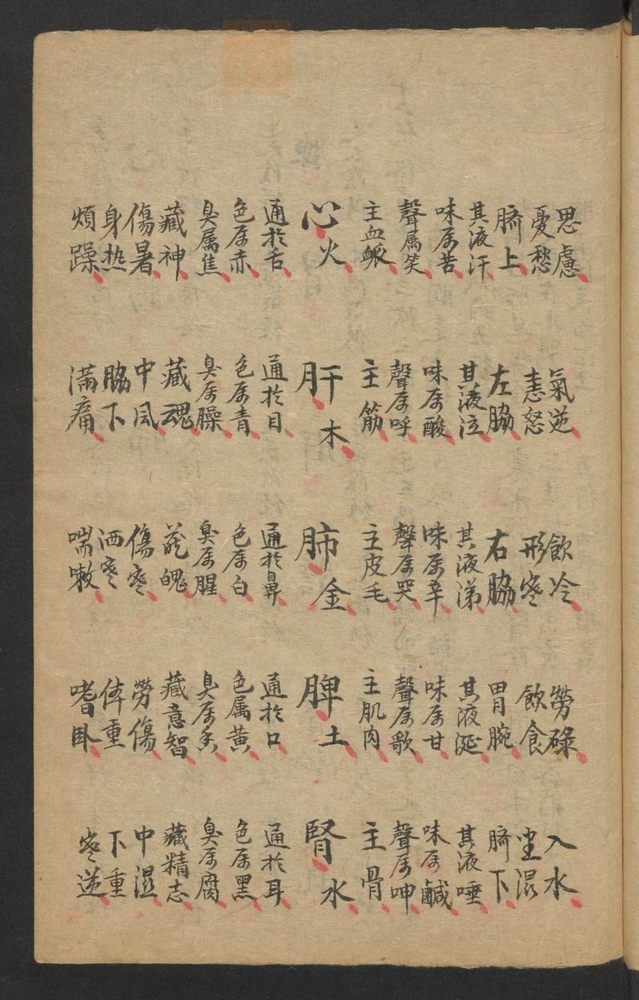 思慮 氣逆 飲冷 勞碌 入水
憂愁 恚怒 形寒 飲食 坐湿
臍上 左脇 右脇 胃腕 臍下
其液汗 其液泣 其液涕 其液涎 其液唾
味属苦 味属酸 味属辛 味属甘 味属鹹
聲属笑 聲属呼 聲属哭 聲属歌 聲属呻
主血脈 主筋 主皮毛 主肌肉 主骨
心火 肝木 肺金 脾土 腎水
通扵舌 通扵目 通扵鼻 通扵口 通扵耳
色属赤 色属青 色属白 色属黃 色属黑
臭属焦 臭属臊 臭属腥 臭属香 臭属腐
藏神 藏魂 藏魄 藏意智 藏精志
傷暑 中風 傷寒 勞傷 中湿
身热 脇下 洒寒 体重 下重
煩躁 滿痛 喘嗽 嗜卧 寒逆